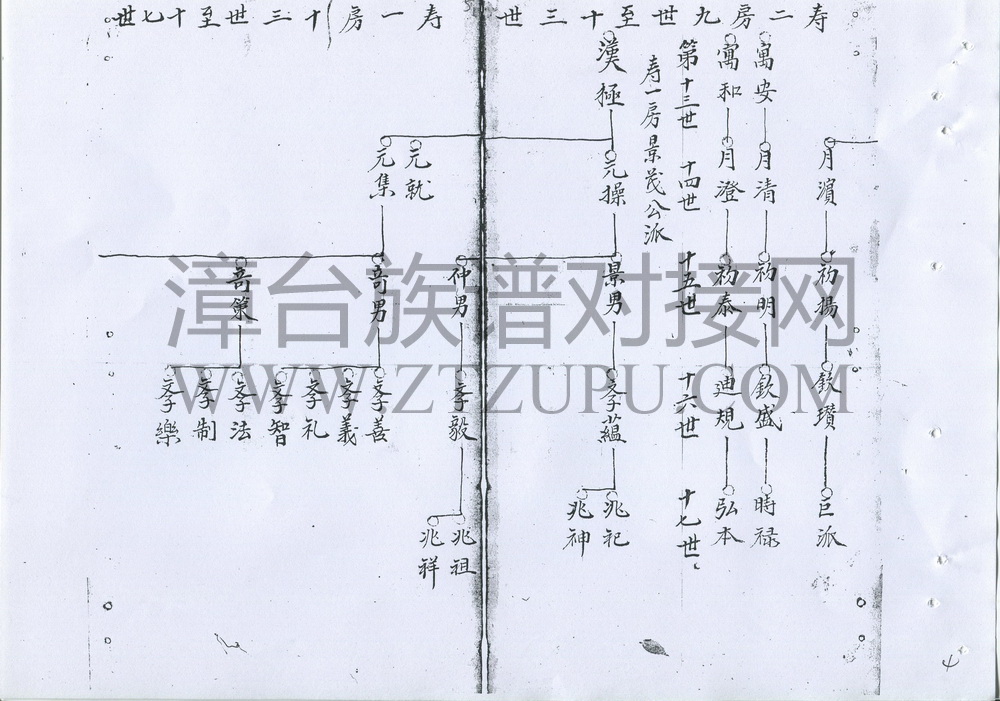 寿二房九世至十三世
寿一房十三世至十七世
月濱
初揚
欽瓚
巨派
寓安
月清
初明
欽盛
時禄
寓和
月澄
初泰
廸規
弘本
第十三世
十四世
十五世
十六世
十七世
寿一房景茂公派
漢極
元操
景男
孝蘊
兆祀
兆神
仲男
孝毅
兆祖
兆祥
元執
元集
奇男
孝善
孝義
孝礼
孝智
奇策
孝法
孝制
孝樂
漳台族谱对接网
WWW.ZTZUPU.COM